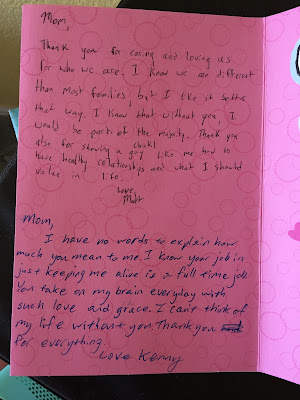 Mom,
Thank you for caring and loving us
for who we are. I know we are different
than most families, but I like it better
that way. I know that without you, I
would be part of the majority. Thank you
also for showing a guy (chick) like me how to
have healthy relationships and what I should
value in life.
Love,
Matt
Mom,
I have no words to explain how
much you mean to me. I know your job in
just keeping me alive is a full time job.
You take on my brain everyday with
such love and grace. I can't think of
my life without you. Thank you
for everything.
Love Kenny